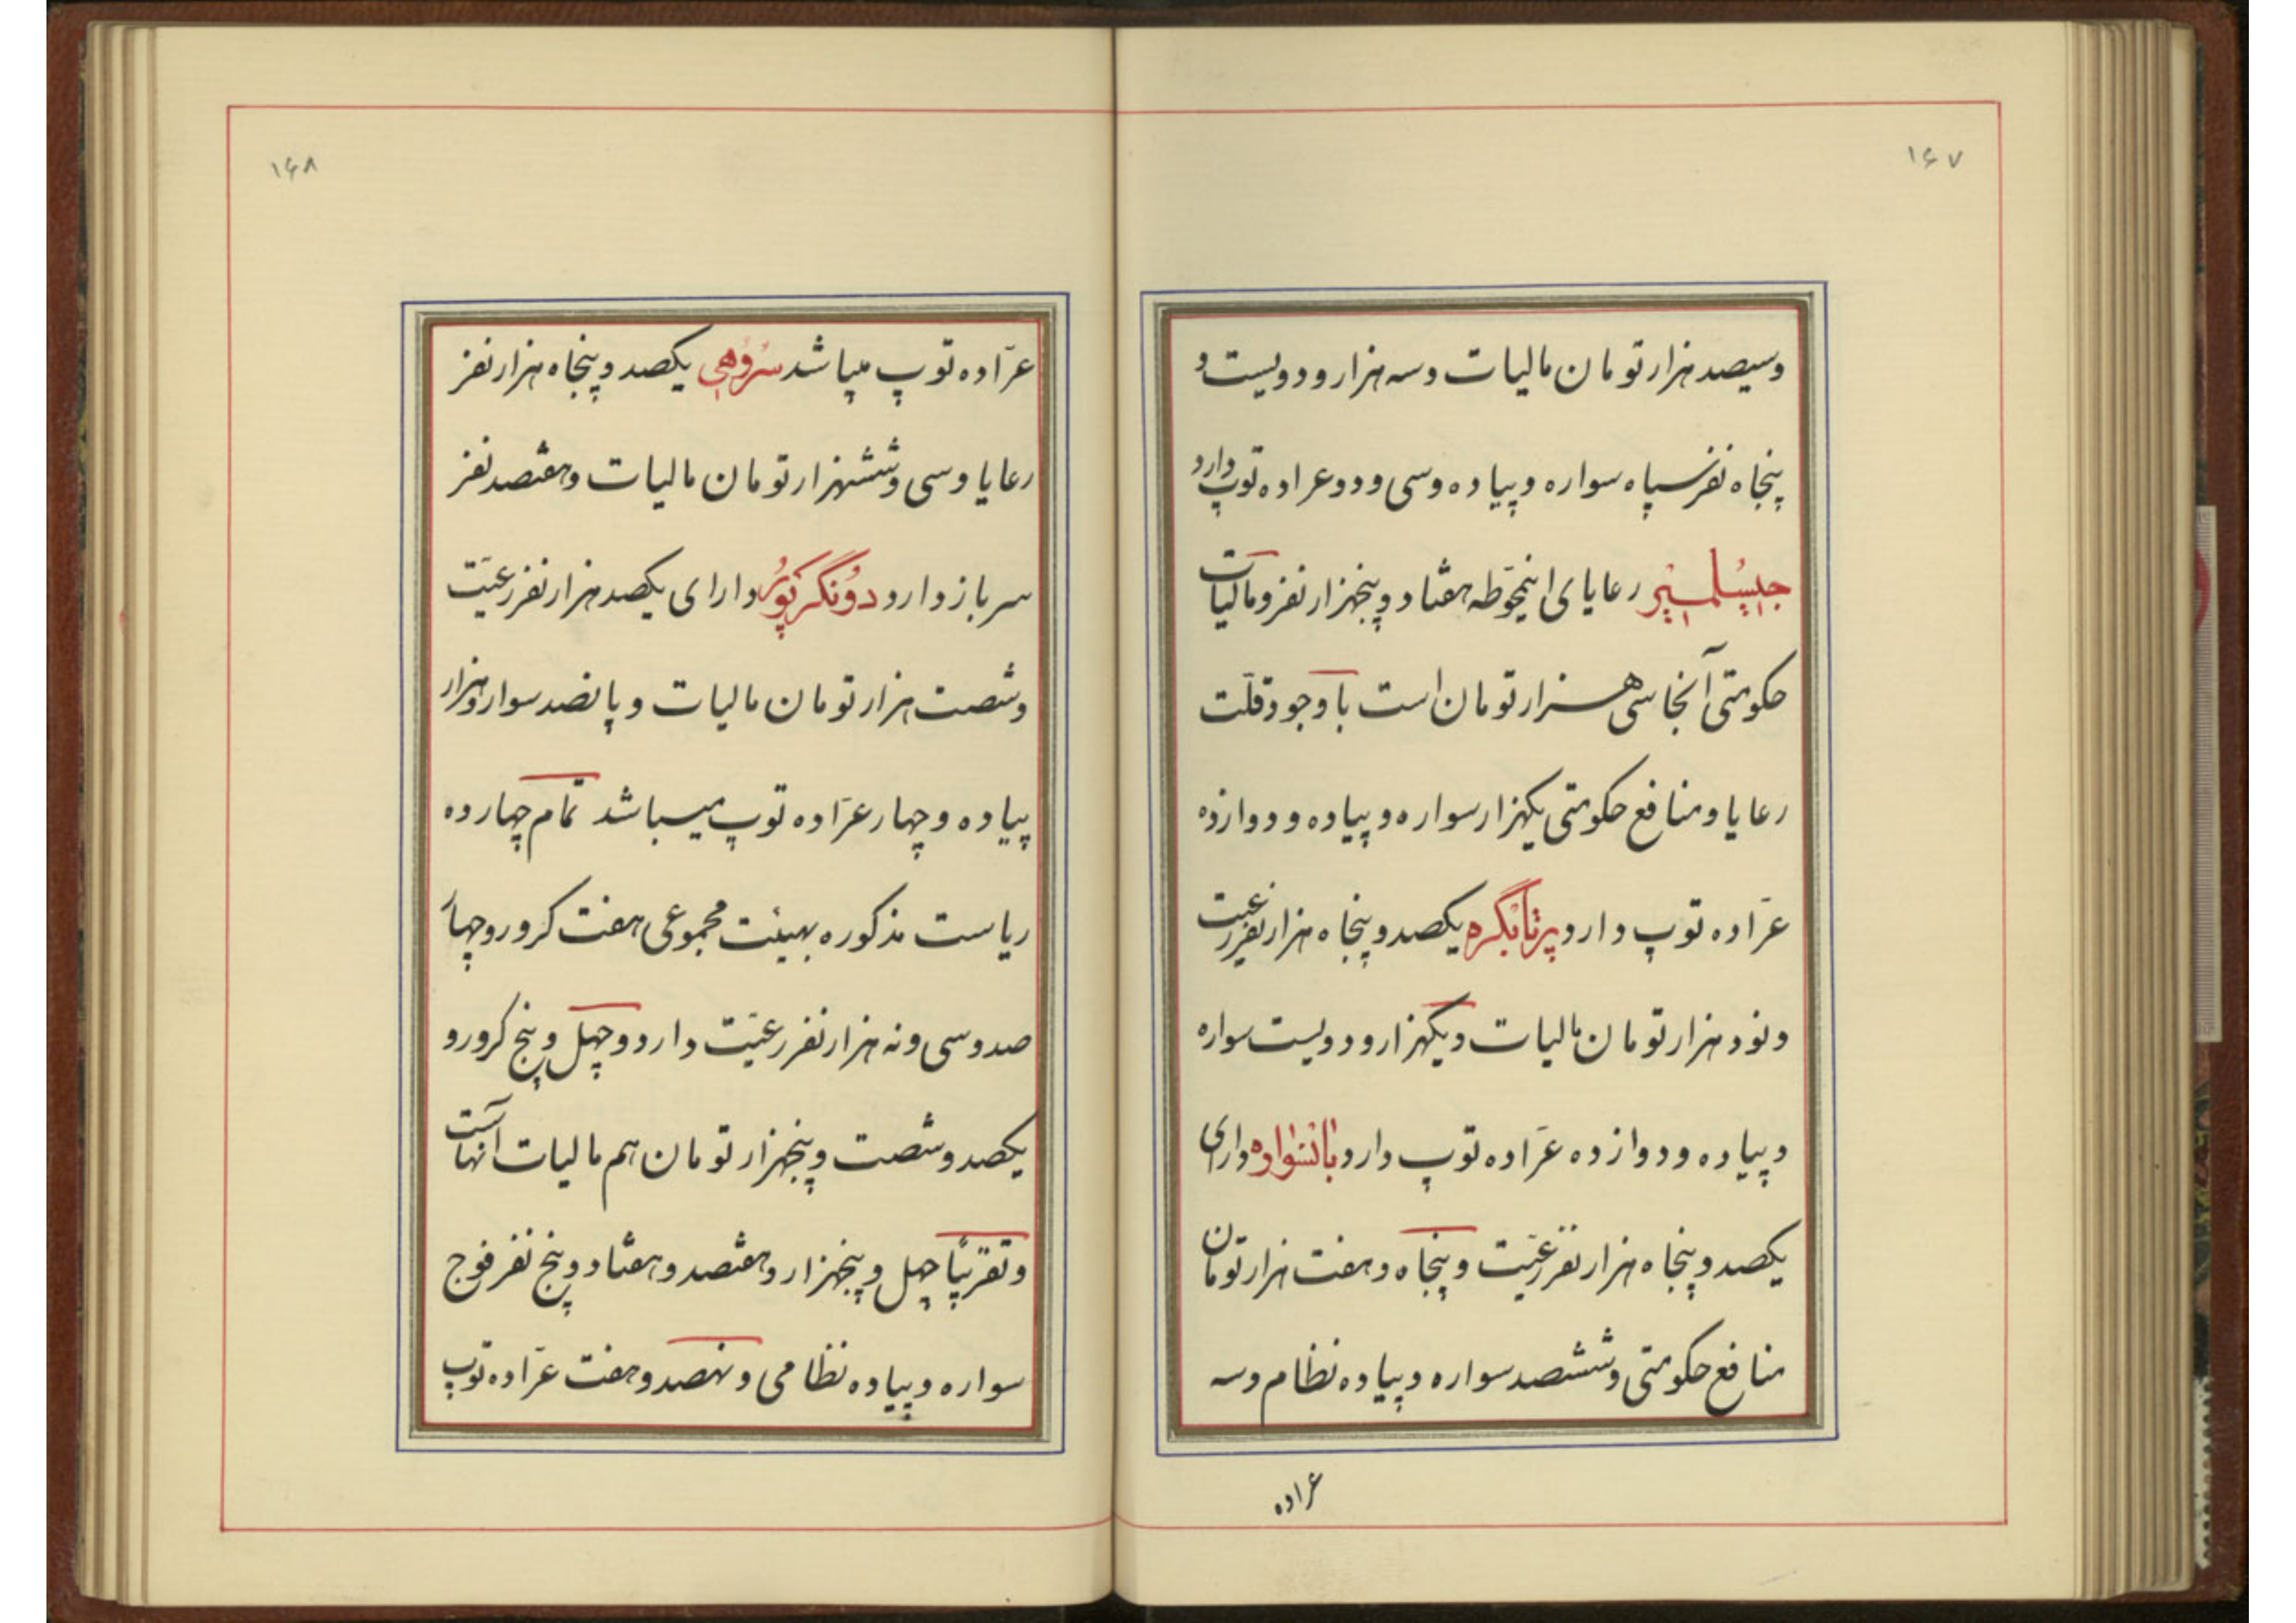 ۱۶۷
وسیصد هزار تومان مالیات و سه هزار و دویست و
پنجاه نفر سپاه سواره و پیاده و سی و دو عراده توپ دارد
جیسلمیر رعایای اینحوطه هفتاد و پنجهزار نفر و مالیات
حکومتی آنجا سی هزار تومان است با وجود قلّت
رعایا و منافع حکومتی یکهزار سواره و پیاده و دوازده
عرّاده توپ دارد پرتابگره یکصد و پنجاه هزار نفر رعیت
و نود هزار تومان مالیات و یکهزار و دویست سواره
و پیاده و دوازده عرّاده توپ دارد بانسواره دارای
یکصد و پنجاه هزار نفر رعیّت و پنجاه و هفت هزار تومان
منافع حکومتی و ششصد سواره و پیاده نظام و سه
عراده
۱۶۸
عرّاده توپ میباشد سروهی یکصد و پنجاه هزار نفر
رعایا و سی و ششهزار تومان مالیات و هفتصد نفر
سرباز دارد دونگرپور دارای یکصد هزار نفر رعیّت
و شصت هزار تومان مالیات و پانصد سوار و هزار
پیاده و چهار عرّاده توپ میباشد تمام چهارده
ریاست مذکوره بهیئت مجموعی هفت کرور و چهار
صد و سی و نه هزار نفر رعیّت دارد و چهل و پنج کرور و
یکصد و شصت و پنجهزار تومان هم مالیات آنهاست
و تقریباً چهل و پنجهزار و هفتصد و هفتاد و پنج نفر فوج
سواره و پیاده نظامی و نهصد و هفت عرّاده توپ